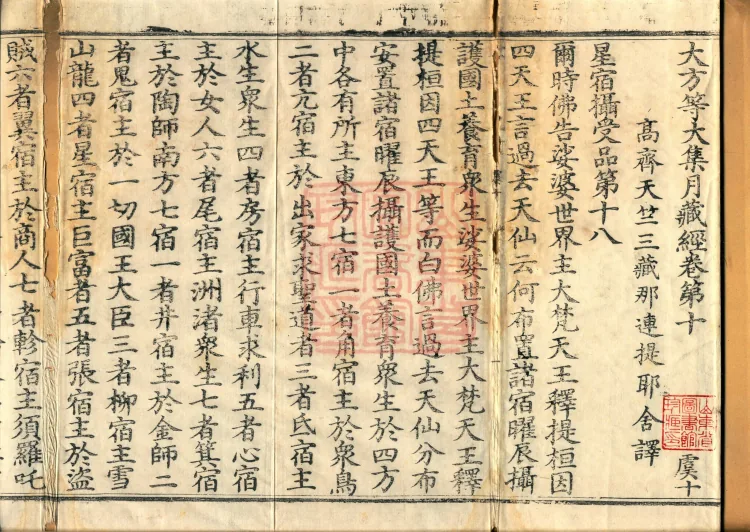 大方等大集月藏經卷第十 虞十
高齊天竺三藏那連提耶舍譯
星宿攝受品第十八
爾時佛告娑婆世界主大梵天王釋提桓因
四天王言過去天仙云何布置諸宿曜辰攝
護國土養育衆生娑婆世界主大梵天王釋
提桓因四天王等而白佛言過去天仙分布
安置諸宿曜辰攝護國土養育衆生於四方
中各有所主東方七宿一者角宿主於衆鳥
二者亢宿主於出家求聖道者三者氐宿主
水生衆生四者房宿主行車求利五者心宿
主於女人六者尾宿主洲渚衆生七者箕宿
主於陶師南方七宿一者井宿主於金師二
者鬼宿主於一切國王大臣三者柳宿主雪
山龍四者星宿主巨富者五者張宿主於盜
賊六者翼宿主於商人七者軫宿主須羅吒